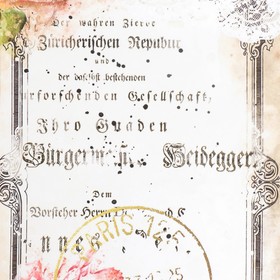 Der wahren Zierde
Züricherischen Republ
und
der daselbst bestehenden
urforschenden Gesellschaft,
Ihro Gnaden
Bürgerm Heidegger
Dem
Vorsteher Herrn
PARIS